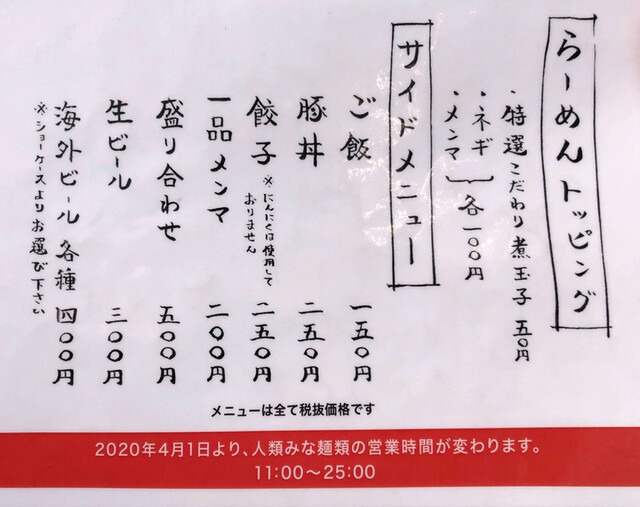 らーめんトッピング
・特選こだわり煮玉子 五〇円
・ネギ
・メンマ
各一〇〇円
サイドメニュー
ご飯 一五〇円
豚丼 二五〇円
餃子 ※にんにくは使用して
おりません 二五〇円
一品メンマ 二〇〇円
盛り合わせ 五〇〇円
生ビール 三〇〇円
海外ビール各種 四〇〇円
※ショーケースよりお選び下さい
メニューは全て税抜価格です
2020年4月1日より、人類みな麺類の営業時間が変わります。
11:00〜25:00